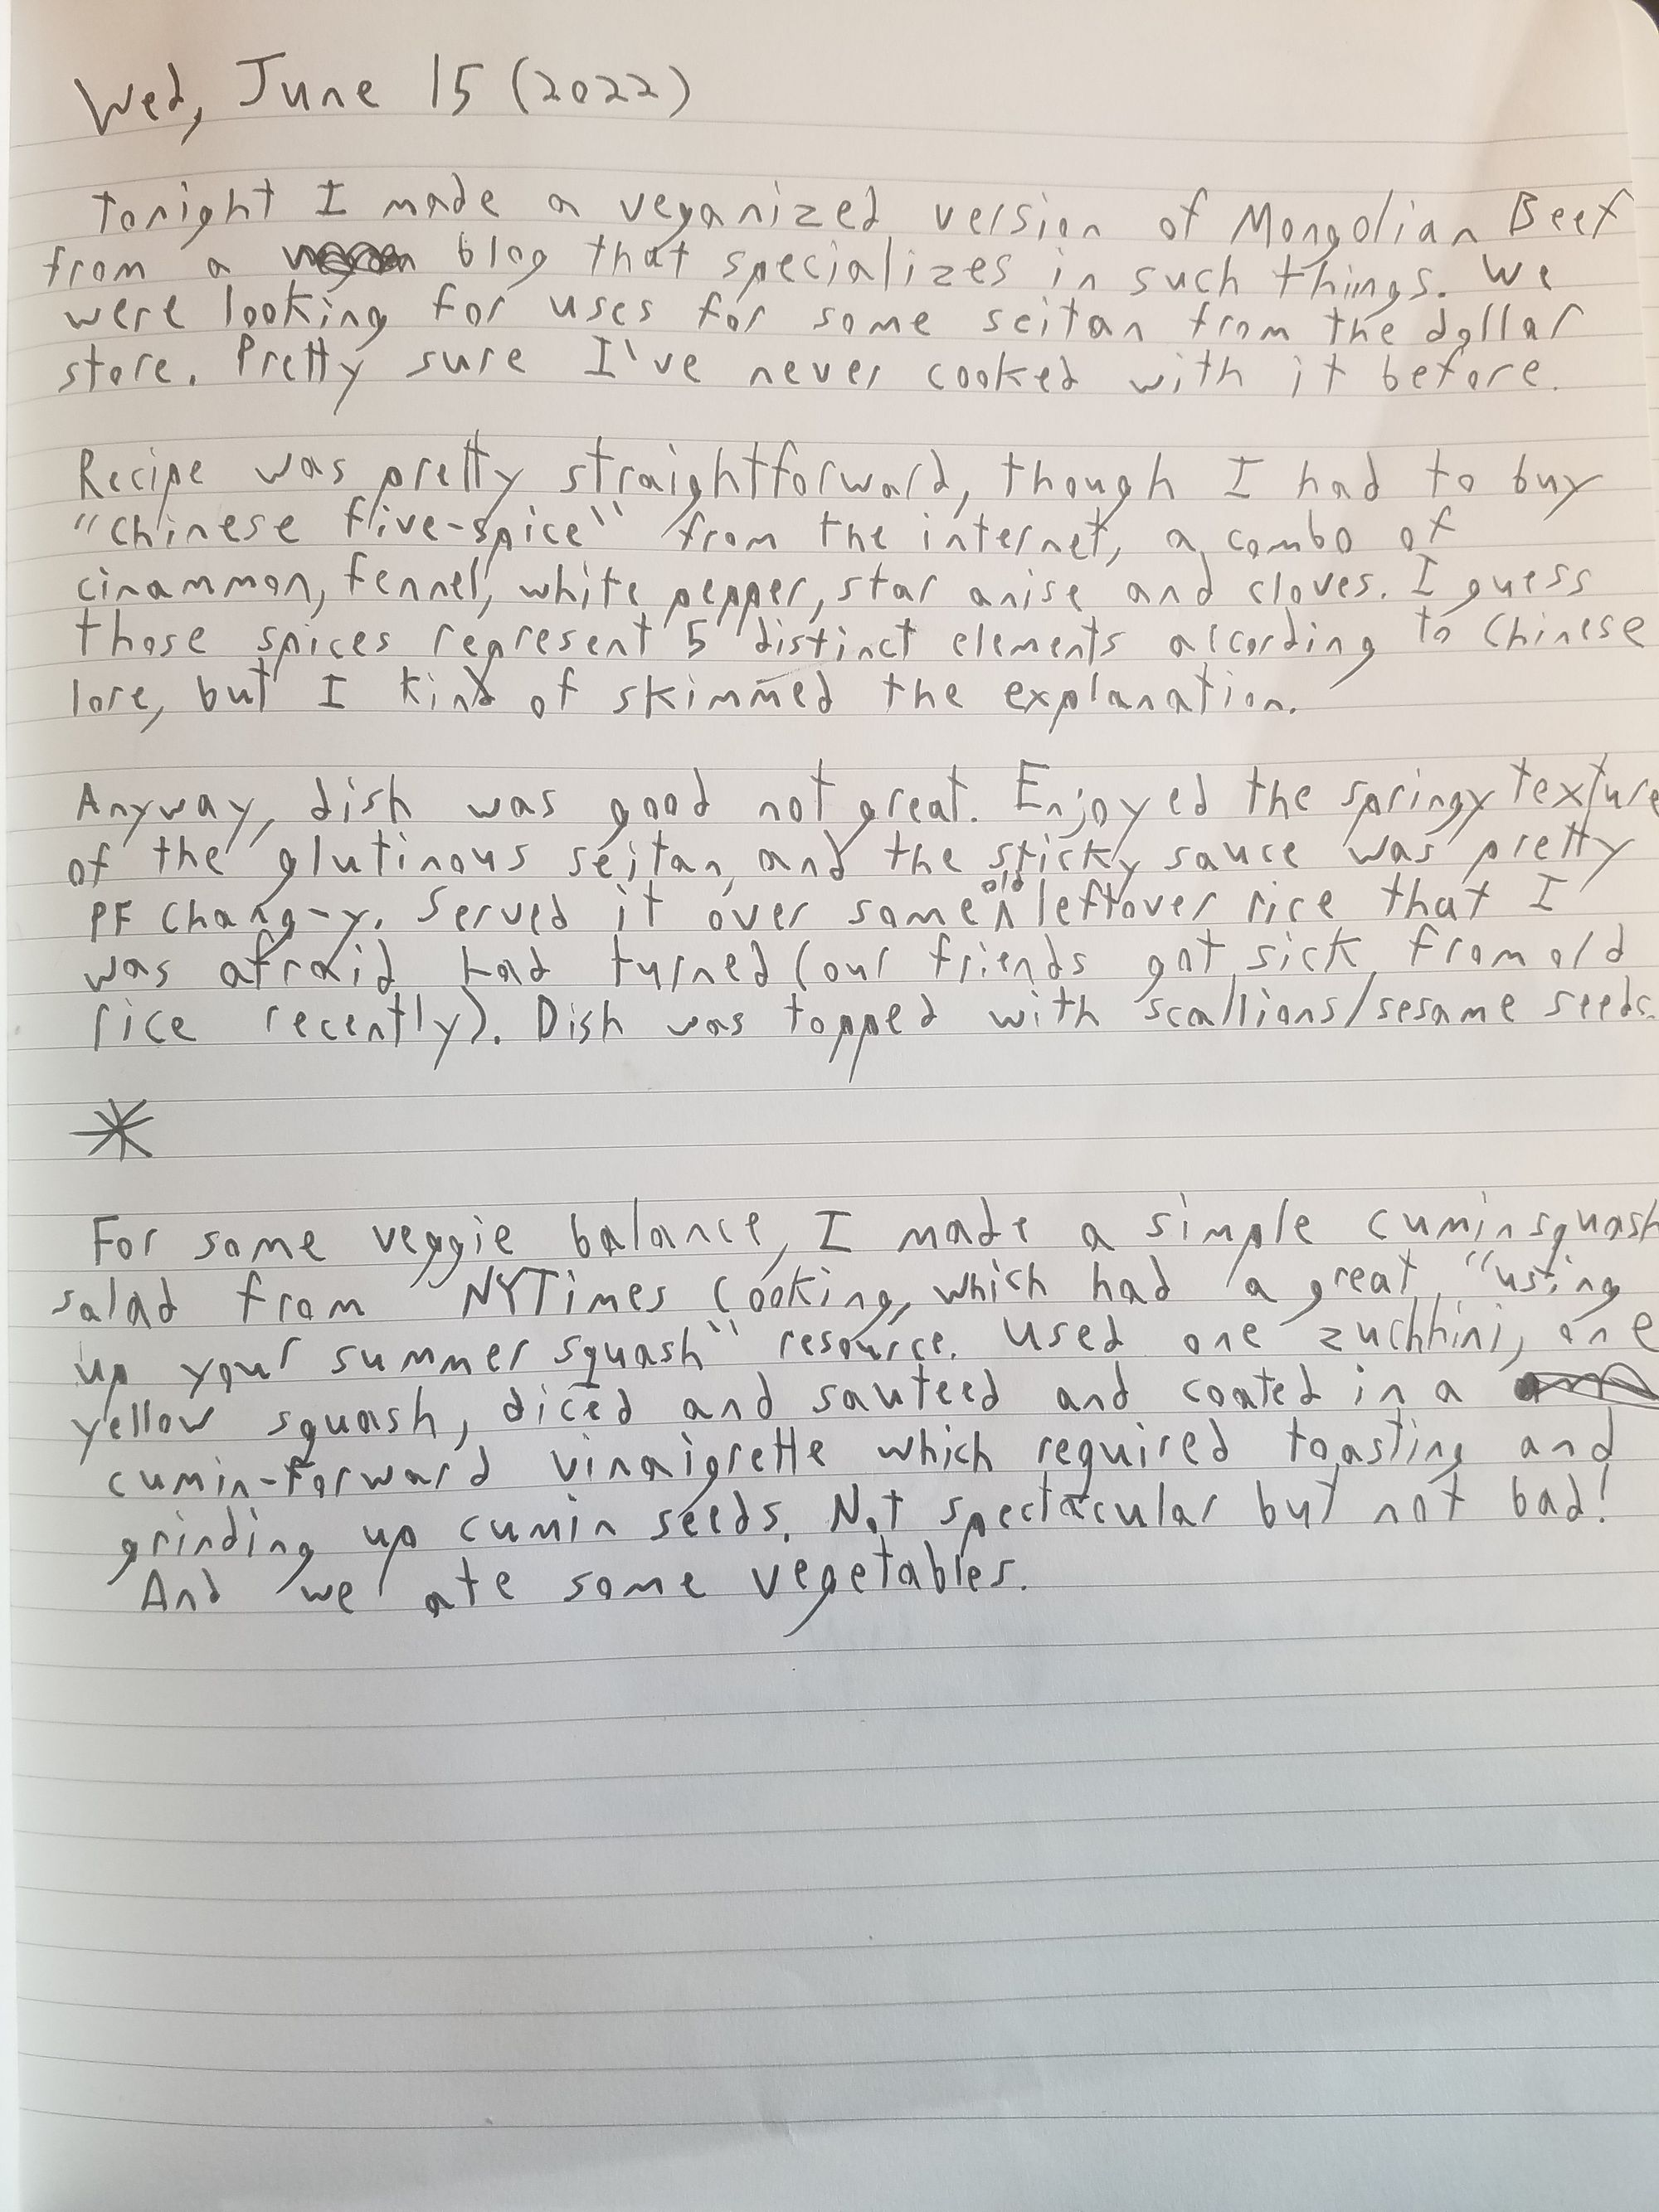 Wed, June 15 (2022)
Tonight I made a veganized version of Mongolian Beef
from a blog that specializes in such things. We
were looking for uses for some seitan from the dollar
store. Pretty sure I've never cooked with it before.
Recipe was pretty straightforward, though I had to buy
"Chinese five-spice" from the internet, a combo of
cinammon, fennel, white pepper, star anise and cloves. I guess
those spices represent 5 distinct elements according to Chinese
lore, but I kind of skimmed the explanation.
Anyway, dish was good not great. Enjoyed the springy texture
of the glutinous seitan, and the sticky sauce was pretty
PF Chang-y. Served it over some old leftover rice that I
was afraid had turned (our friends got sick from old
rice recently). Dish was topped with scallions/sesame seeds.
*
For some veggie balance, I made a simple cumin squash
salad from NYTimes Cooking, which had a great "using
up your summer squash" resource. Used one zuchhini, one
yellow squash, diced and sauteed and coated in a
cumin-forward vinaigrette which required toasting and
grinding up cumin seeds. Not spectacular but not bad!
And we ate some vegetables.